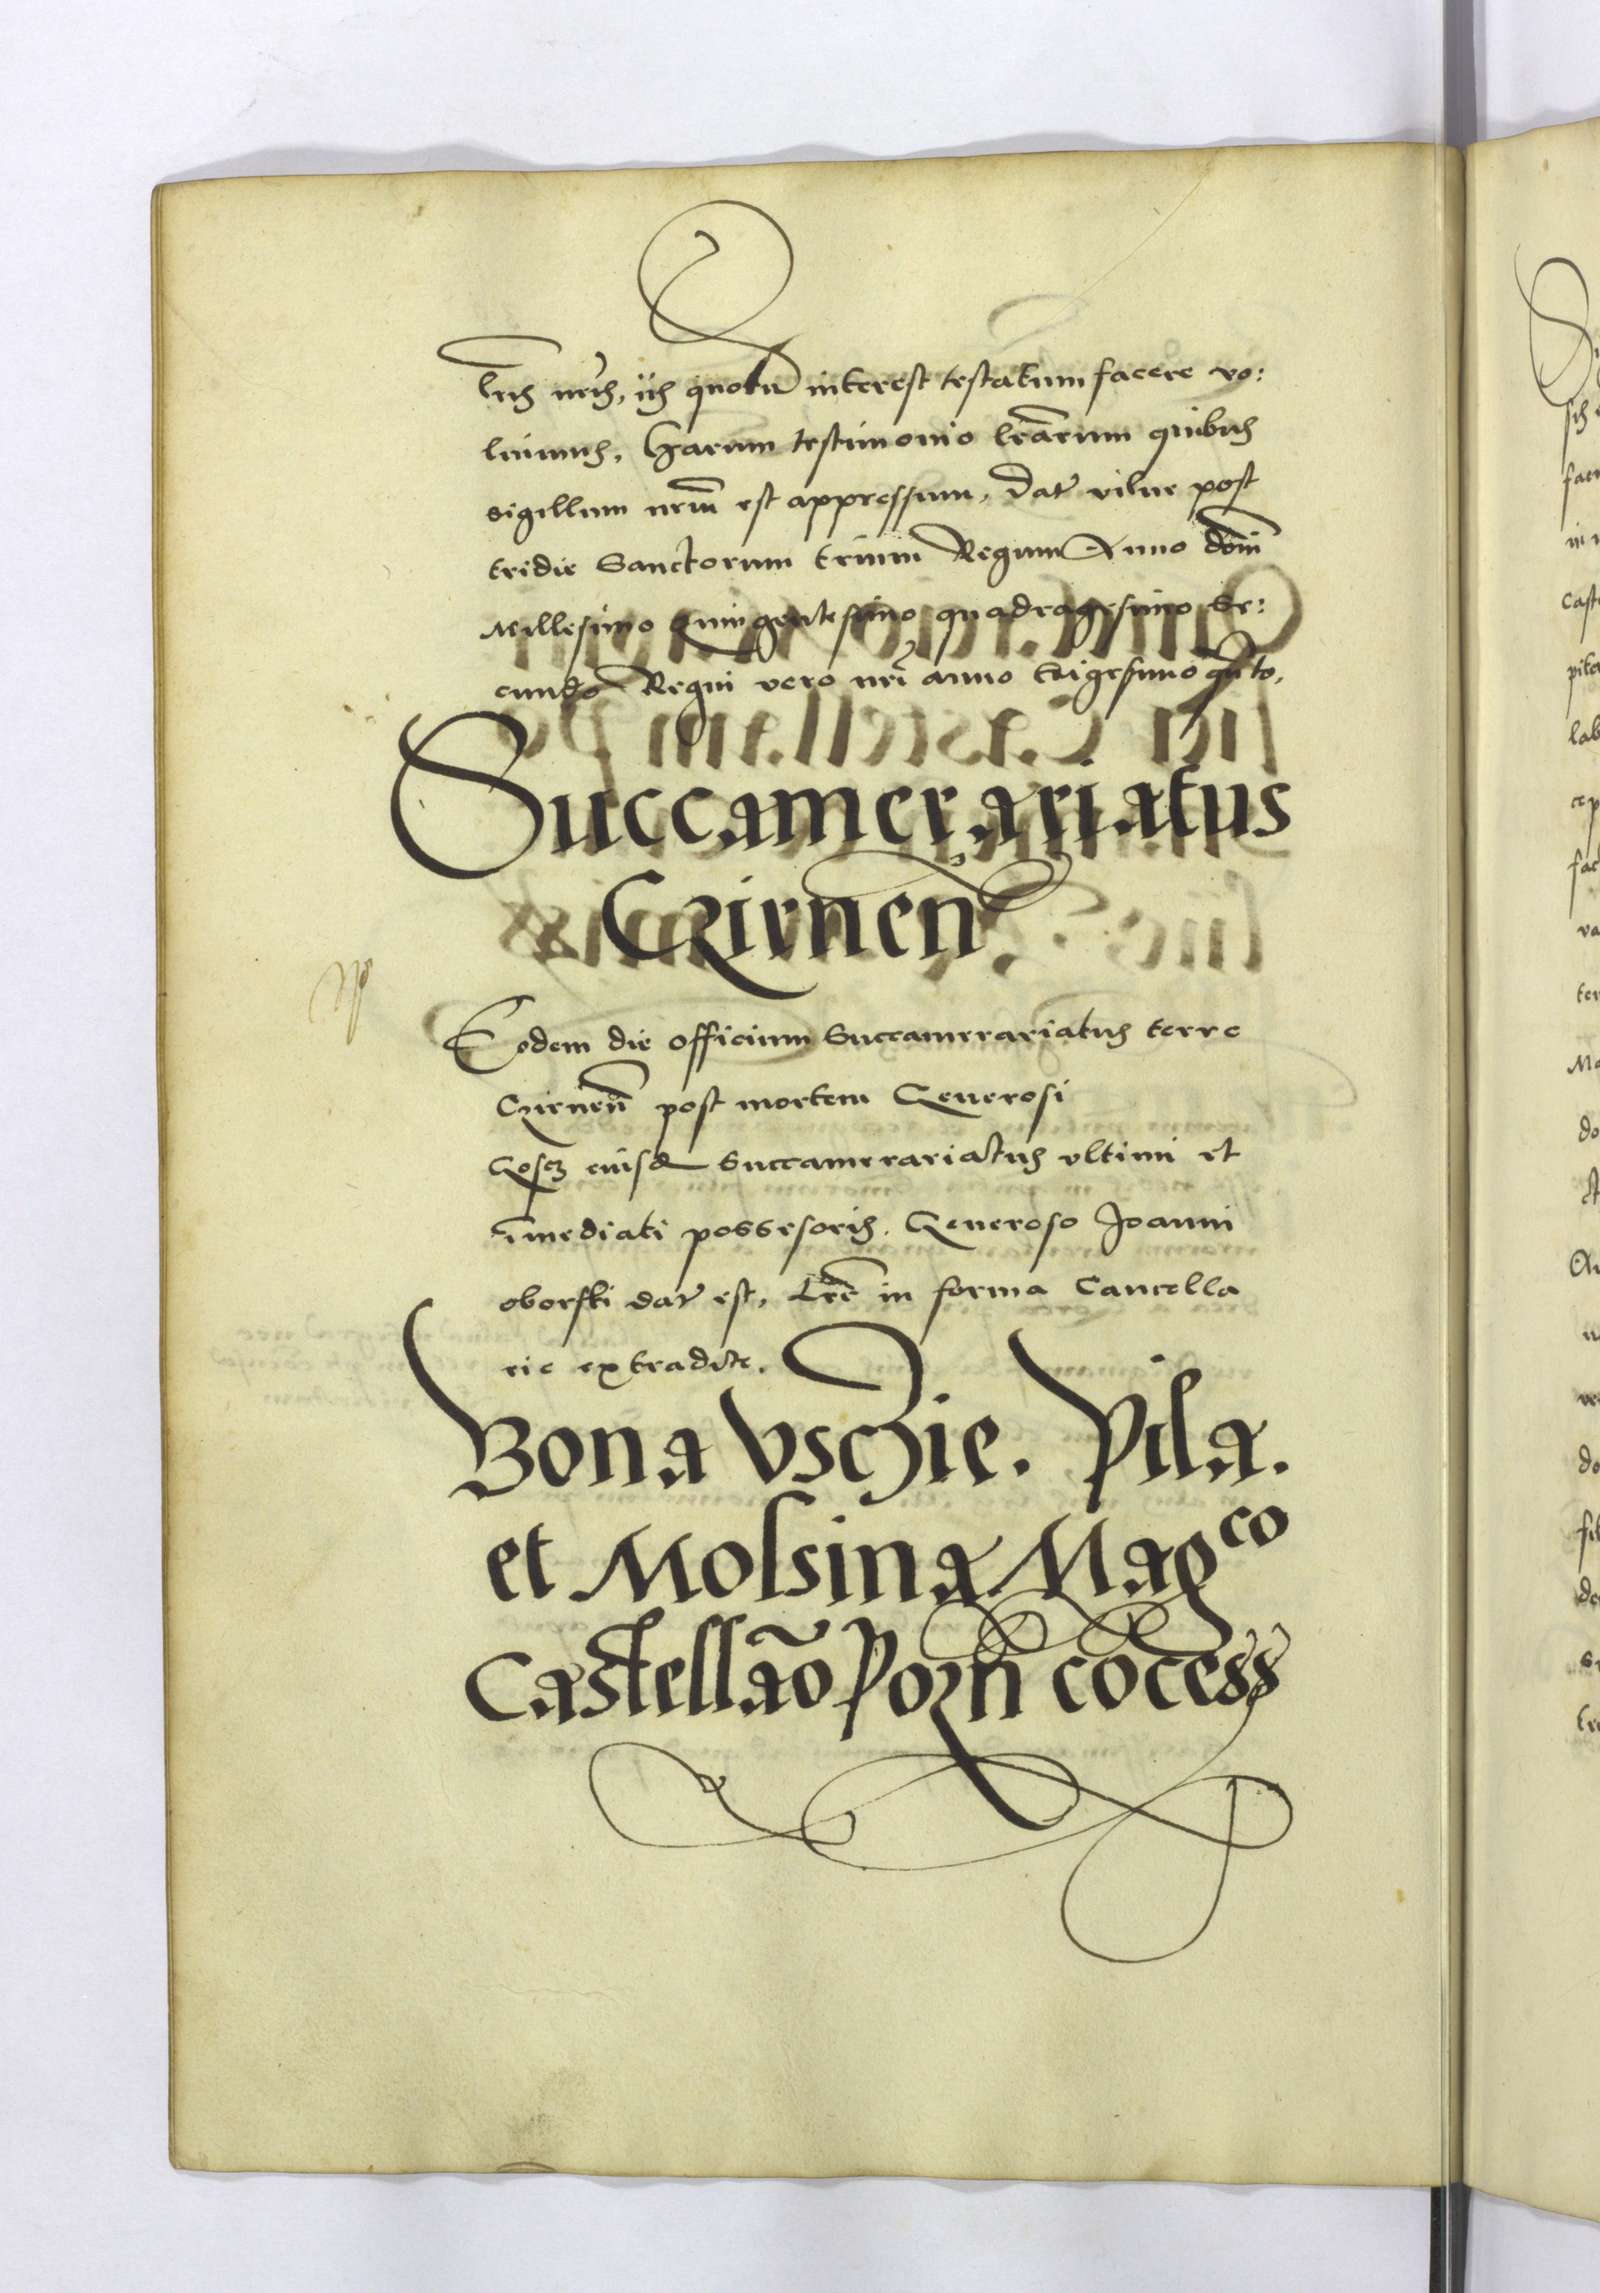 lris nris, iis quoru interest testatum facere vo:
luimus, Harum testimonio lrarum quibus
sigillum nrum est appressum, Dat vilne post
tridie Sanctorum trium Regum Anno domi
Millesimo Quingentesimo quadragesimo Se:
cundo Regni vero nri anno trigesimo qnto,
Succamerariatus
Czirnen
Eodem die officium Succamerariatus terre
Czirnen post mortem Generosi
eiusd Succamerariatus ultimi et
imediati possesoris. Generoso Joanni
oborski dat est, Lre in forma Cancella
rie extradite.
Bona Vsczie. Pila.
et Molsina Magco
Castellão Pozn cocess